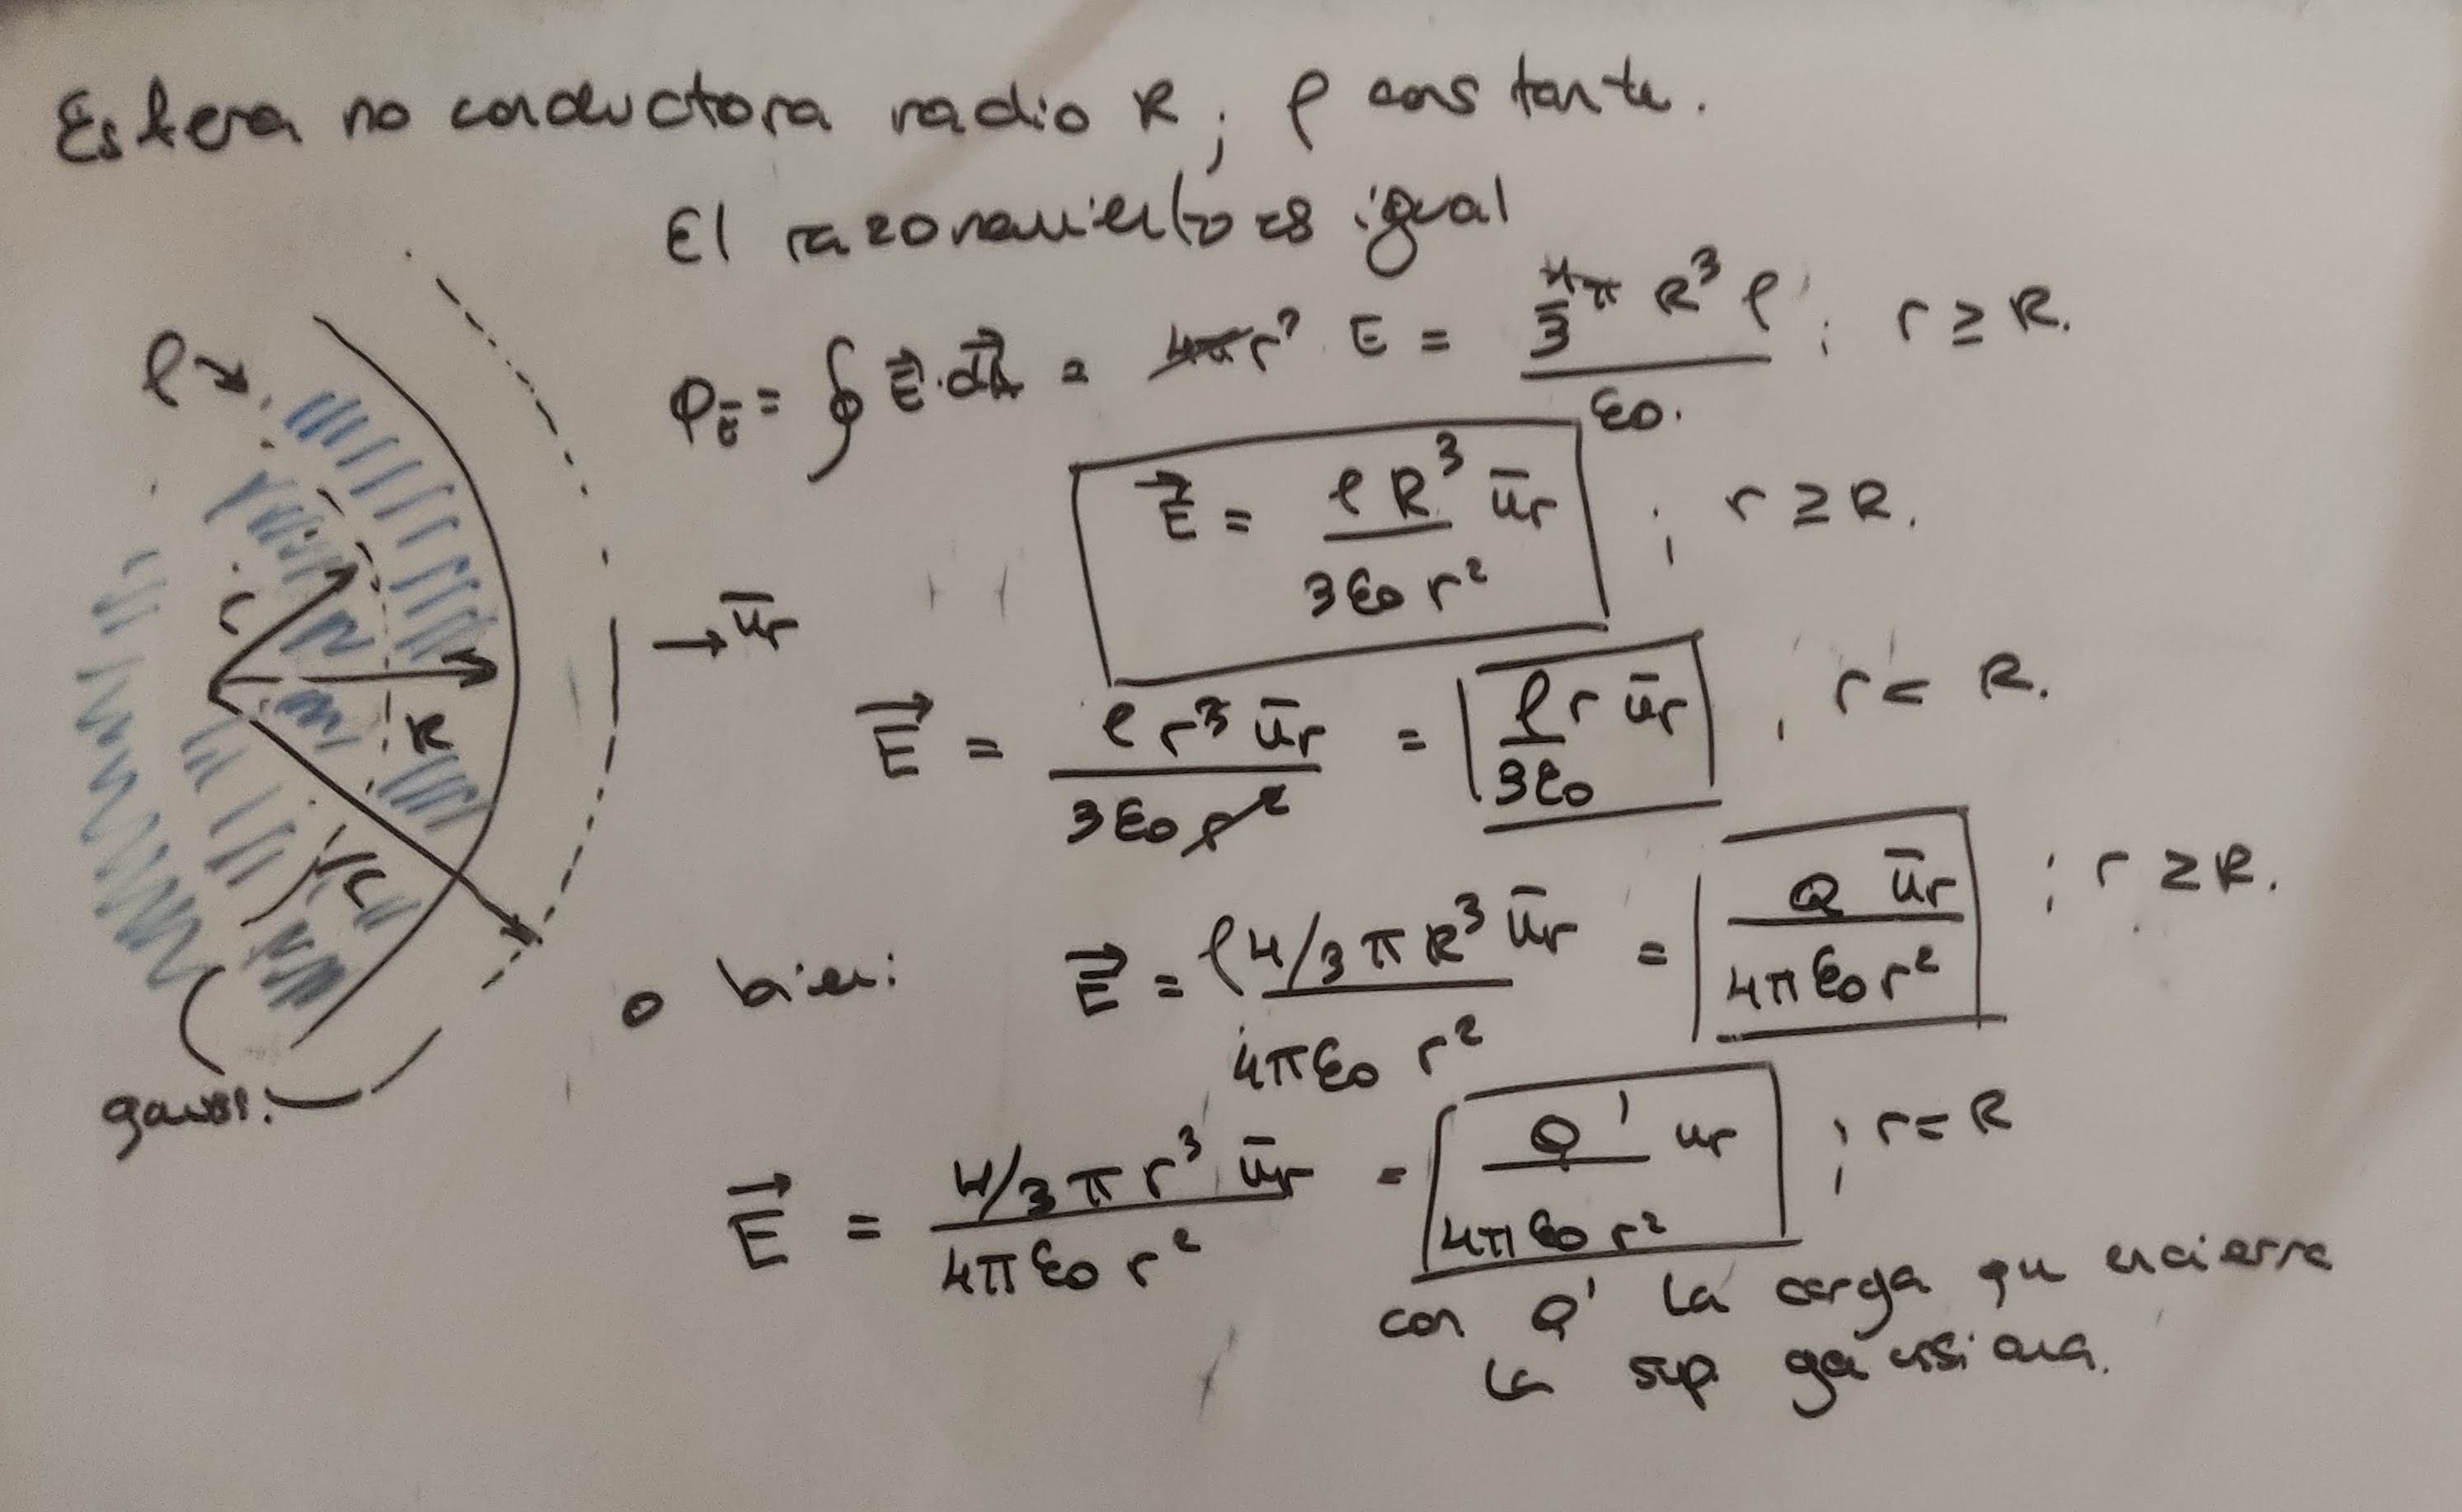 Esfera no conductora radio R; ρ constante.
El razonamiento es igual
φ_E = ∮ E⃗·dA⃗ = 4π r² E = (4/3 π R³ ρ) / ε₀ ; r ≥ R.
E⃗ = (ρ R³ / 3ε₀ r²) ūr ; r ≥ R.
E⃗ = ρ r³ ūr / 3ε₀ r² = (ρ r / 3ε₀) ūr , r < R.
o bien: E⃗ = ρ 4/3 π R³ ūr / 4πε₀ r² = Q ūr / 4πε₀ r² ; r ≥ R.
E⃗ = 4/3 π r³ ūr / 4πε₀ r² = Q' ur / 4πε₀ r² ; r = R
con Q' la carga que encierra
la sup. gaussiana.
ρ
r
R
r
ūr
gauss.